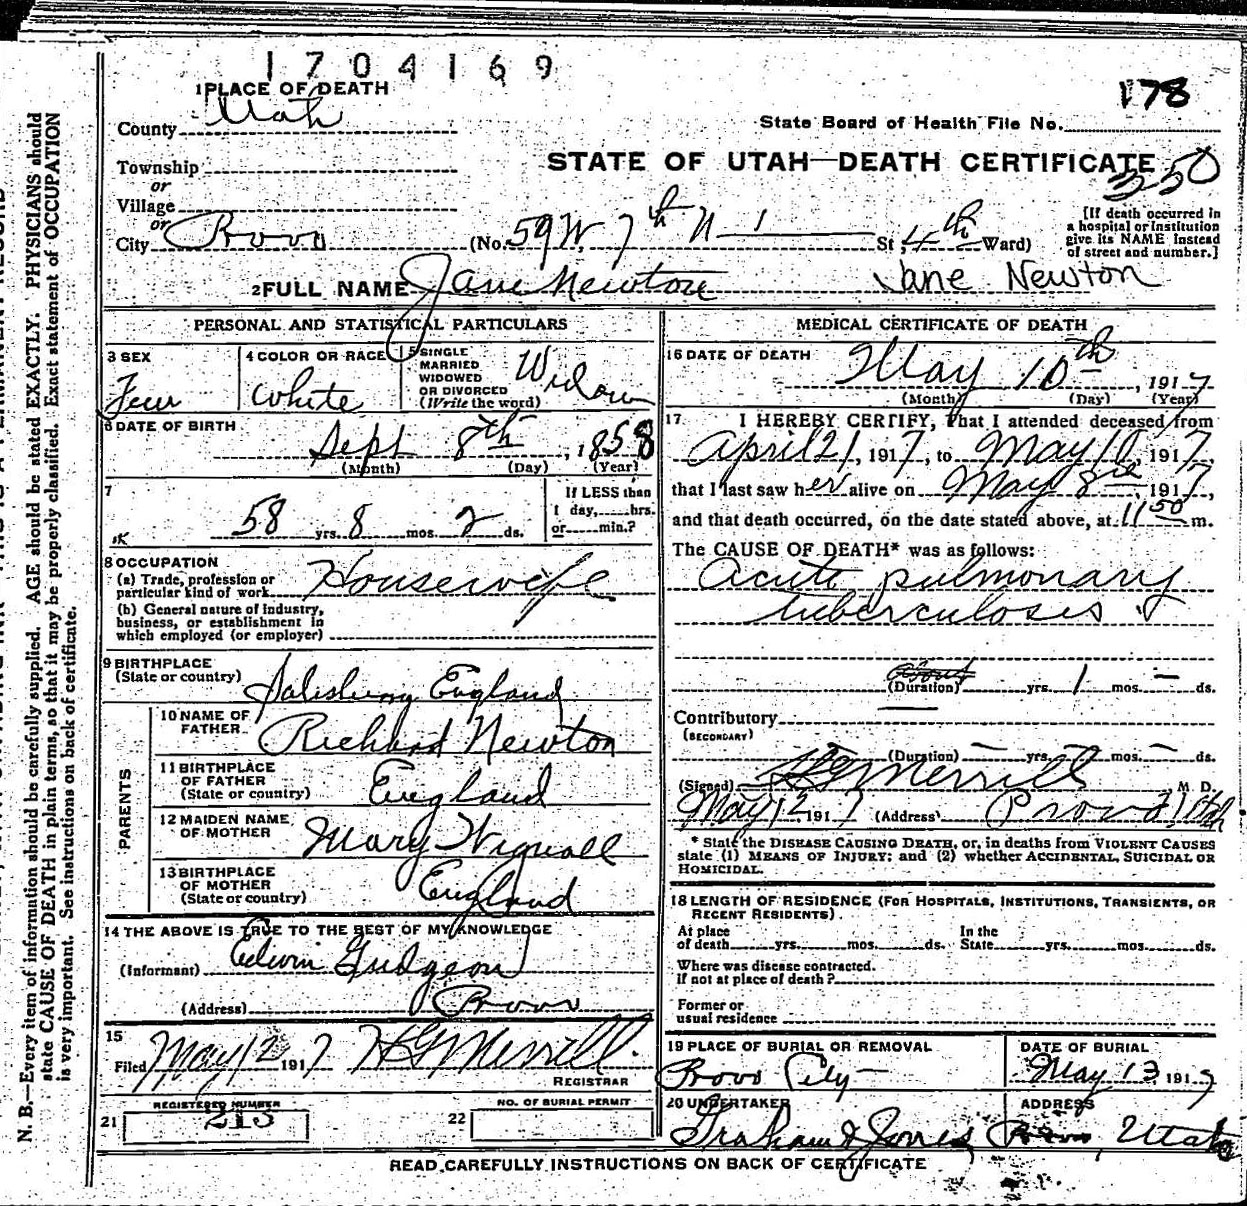 1704169
178
1 PLACE OF DEATH
County Utah
State Board of Health File No.
Township
STATE OF UTAH—DEATH CERTIFICATE
350
or
Village
or
City Provo (No. 59 W. 7th N St, 4th Ward)
[If death occurred in
a hospital or institution
give its NAME instead
of street and number.]
2 FULL NAME Jane Newton Jane Newton
PERSONAL AND STATISTICAL PARTICULARS
3 SEX
Fem
4 COLOR OR RACE
White
5 SINGLE
MARRIED
WIDOWED
OR DIVORCED
(Write the word)
Widow
6 DATE OF BIRTH
Sept 8th, 1858
(Month) (Day) (Year)
7
58 yrs. 8 mos. 2 ds.
If LESS than
1 day, hrs.
or min.?
8 OCCUPATION
(a) Trade, profession or
particular kind of work Housewife
(b) General nature of industry,
business, or establishment in
which employed (or employer)
9 BIRTHPLACE
(State or country) Salisbury England
PARENTS
10 NAME OF
FATHER Richard Newton
11 BIRTHPLACE
OF FATHER
(State or country) England
12 MAIDEN NAME
OF MOTHER Mary Wignall
13 BIRTHPLACE
OF MOTHER
(State or country) England
14 THE ABOVE IS TRUE TO THE BEST OF MY KNOWLEDGE
(Informant) Edwin Gudgeon
(Address) Provo
15
Filed May 12 1917 HG Merrill.
REGISTRAR
21 REGISTERED NUMBER
213
22 NO. OF BURIAL PERMIT
MEDICAL CERTIFICATE OF DEATH
16 DATE OF DEATH
May 10th, 1917
(Month) (Day) (Year)
17 I HEREBY CERTIFY, that I attended deceased from
April 21, 1917, to May 10, 1917,
that I last saw her alive on May 8, 1917,
and that death occurred, on the date stated above, at 11 50 m.
The CAUSE OF DEATH* was as follows:
Acute pulmonary
tuberculosis
about
(Duration) yrs. 1 mos. — ds.
Contributory
(SECONDARY)
(Duration) — yrs. — mos. — ds.
(Signed) HG Merrill M. D.
May 12 1917 (Address) Provo Utah
* State the DISEASE CAUSING DEATH, or, in deaths from VIOLENT CAUSES
state (1) MEANS OF INJURY; and (2) whether ACCIDENTAL, SUICIDAL OR
HOMICIDAL.
18 LENGTH OF RESIDENCE (FOR HOSPITALS, INSTITUTIONS, TRANSIENTS, OR
RECENT RESIDENTS).
At place
of death yrs. mos. ds.
In the
State yrs. mos. ds.
Where was disease contracted.
if not at place of death?
Former or
usual residence
19 PLACE OF BURIAL OR REMOVAL
Provo City
DATE OF BURIAL
May 13 1917
20 UNDERTAKER
Graham & Jones
ADDRESS
Provo, Utah
READ CAREFULLY INSTRUCTIONS ON BACK OF CERTIFICATE
N. B.—Every item of information should be carefully supplied. AGE should be stated EXACTLY. PHYSICIANS should
state CAUSE OF DEATH in plain terms, so that it may be properly classified. Exact statement of OCCUPATION
is very important. See instructions on back of certificate.